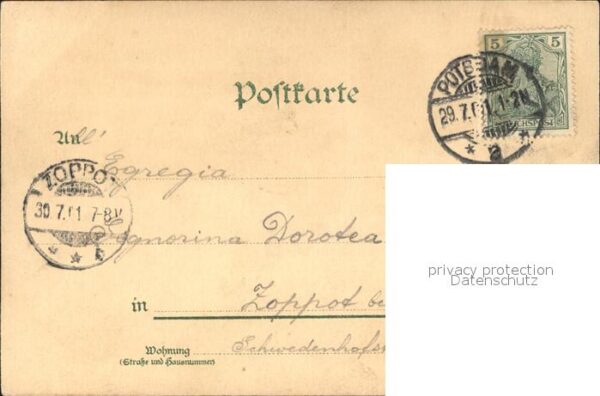 5 5
POTSDAM
29.7.01. 1-2N.
a
Postkarte
An
All'
Egregia
ZOPPOT
30.7.01 7-8V
Signorina Dorotea
privacy protection
Datenschutz
in
Zoppot
Wohnung
(Straße und Hausnummer)